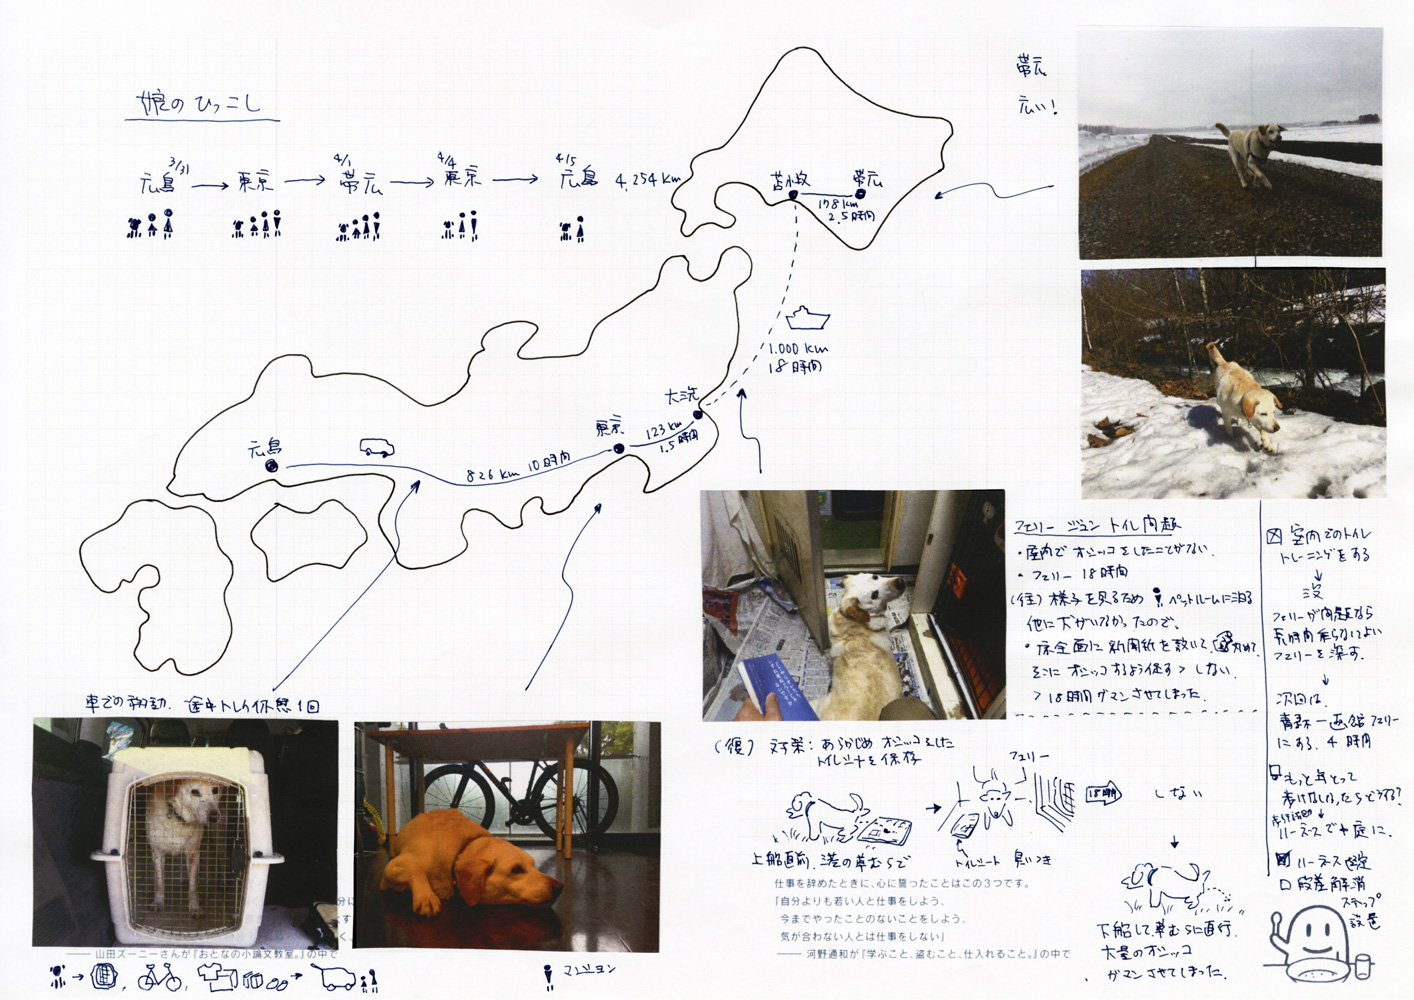 娘のひっこし
3/31 4/1 4/4 4/5
広島 → 東京 → 帯広 → 東京 → 広島 4,254km
帯広
広い!
苫小牧 帯広
178km
2.5時間
1.000km
18時間
大洗
東京
123km
1.5時間
広島
826km 10時間
車での移動. 途中トイレ休憩1回
フェリー ジュン トイレ問題
・屋内でオシッコをしたことがない.
・フェリー 18時間
(往) 様子を見るため ペットルームに泊る
他に犬がいなかったので、
・床全面に新聞紙を敷いて、
そこにオシッコするよう促す > しない
> 18時間ガマンさせてしまった.
(復) 対策: あらかじめオシッコをした
トイレシートを保存
フェリー
18時間
しない
上船直前. 港の草むらで
トイレシート 臭いつき
下船して草むらに直行.
大量のオシッコ
ガマンさせてしまった.
室内でのトイレ
トレーニングをする
↓
没
フェリーが問題なら
長時間乗らなくてよい
フェリーを探す.
↓
次回は、
青森—函館フェリー
にする. 4時間
もっと年とって
歩けなくなったらどうする?
歩行補助
ハーネスで庭に.
ハーネス
段差解消
ステップ
設置
仕事を辞めたときに、心に誓ったことはこの3つです。
「自分よりも若い人と仕事をしよう、
今までやったことのないことをしよう、
気が合わない人とは仕事をしない」
—— 河野通和が『学ぶこと、盗むこと、仕入れること。』の中で
分に
す
く、
—— 山田ズーニーさんが『おとなの小論文教室。』の中で
マンション